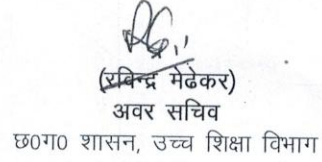 (रविन्द्र मेढेकर)
अवर सचिव
छ0ग0 शासन, उच्च शिक्षा विभाग